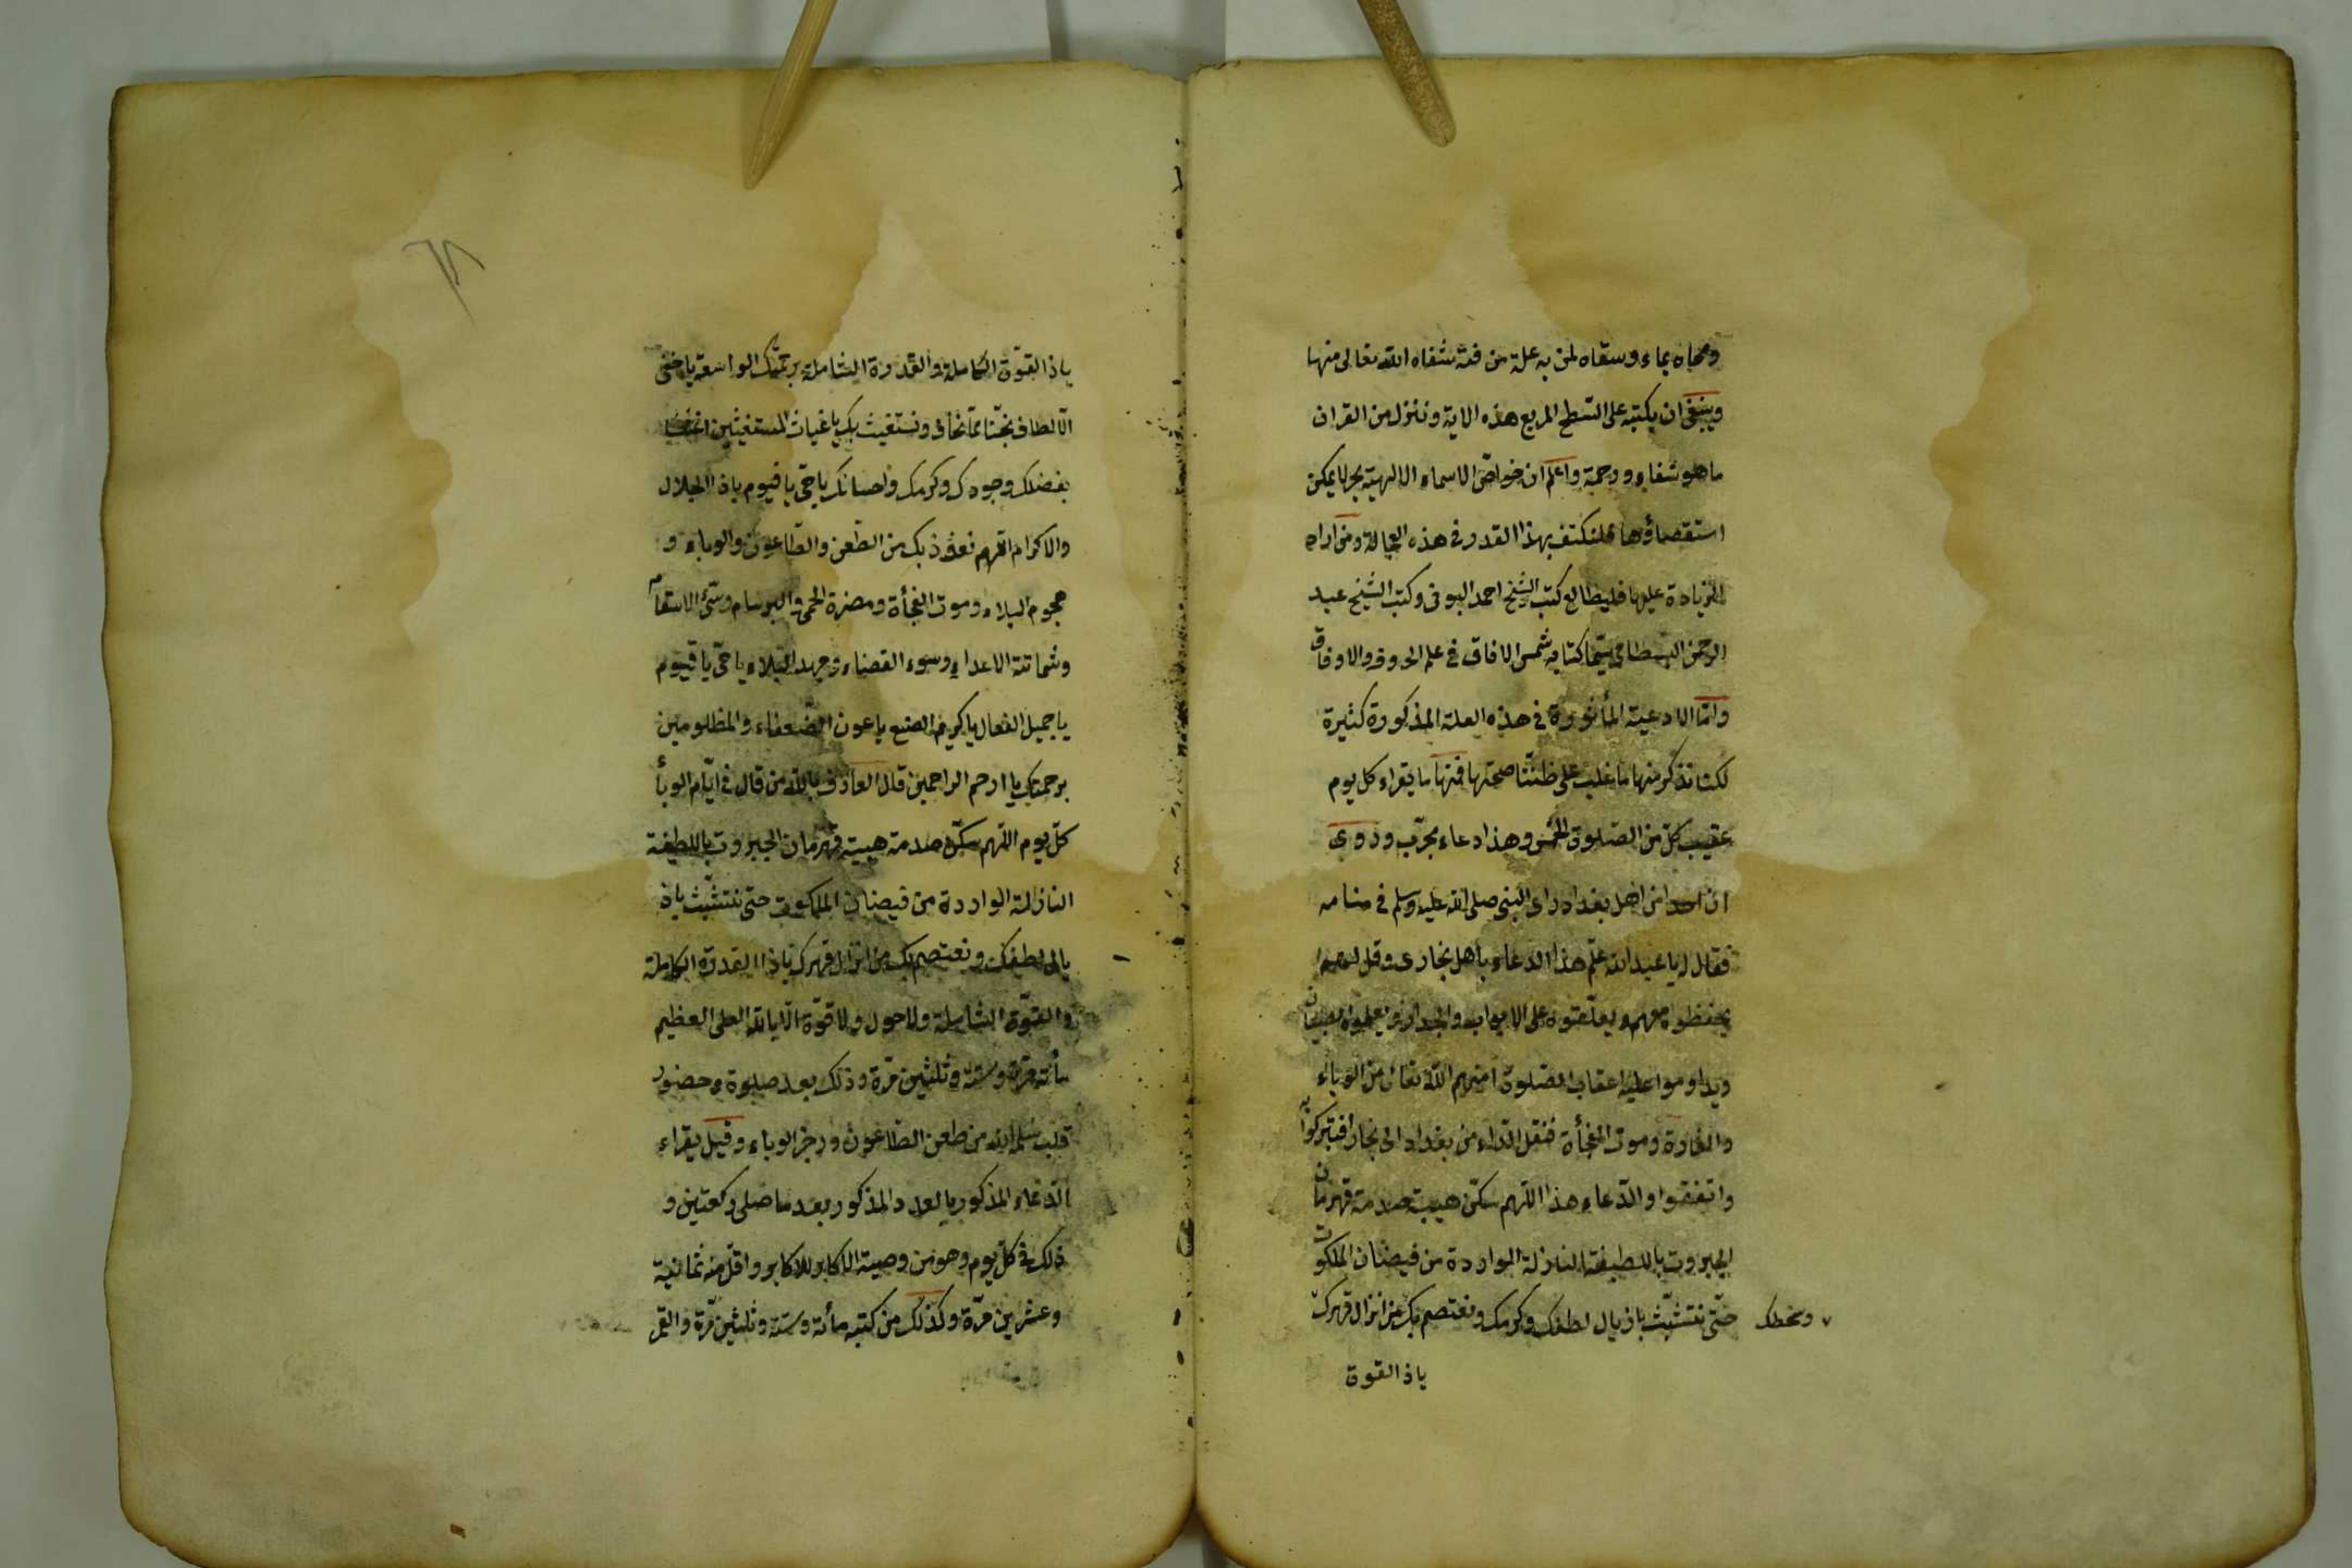 ومحاه بماء وسقاه لمن به علة من فتة شفاه الله تعالى منها
وينبغي ان يكتبه على السّطح المربع هذه الاية وننزل من القران
ما هو شفاء ورحمة واعلم ان خواصّ الاسماء الالهية بحر لا يمكن
استقصاؤها فلنكتف بهذا القدر في هذه العجالة ومن اراد
الزيادة عليها فليطالع كتب الشيخ احمد البونى وكتب الشيخ عبد
الرحمن البسطامى سيّما كتابه شمس الافاق في علم الحروف والاوفاق
وامّا الادعية المأثورة في هذه العلة المذكورة كثيرة
لكنا نذكر منها ما غلب على ظننّا صحتها فمنها ما يقراء كل يوم
عقيب كلّ من الصّلوة الخمس وهذا دعاء مجرّب وروى
ان احدا من اهل بغداد راى النبى صلى الله عليه وسلم في منامه
فقال له يا عبد الله علّم هذا الدعاء باهل بخارى وقل لهم
يحفظوه معهم ويعلّقوه على الابواب والجدار
ويداوموا عليه اعقاب الصّلوة امنهم الله تعالى من الوباء
والغارة وموت الفجأة فنقل الدّاء من بغداد الى بخارا فتبركوا به
واتفقوا والدّعاء هذا اللّهم سكّن هيبت صدمة قهرمان
الجبروت باللطيفة النازلة الواردة من فيضان الملكوت
حتّى نتشبّث باذيال لطفك وكرمك ونعتصم بك عن انزال قهرك
وسخطك
ياذ القوة
ياذا القوّة الكاملة والقدرة الشاملة برحمتك الواسعة يا خفى
الالطاف نجّنا ممّا نخاف ونستغيث بك يا غياث المستغيثين اغثنا
بفضلك وجودك وكرمك واحسانك يا حى يا قيوم ياذا الجلال
والاكرام اللهم نعوذ بك من الطّعن والطّاعون والوباء و
هجوم البلاء وموت الفجأة ومضرة الحمى والبرسام وسىّء الاسقام
وشماتة الاعداء وسوء القضاء وجهد البلاء يا حىّ يا قيوم
يا جميل الفعال يا كريم الصنع يا عون الضّعفاء والمظلومين
برحمتك يا ارحم الراحمين قال العارف بالله من قال في ايّام الوبأ
كلّ يوم اللّهم سكّن صدمة هيبة قهرمان الجبروت باللطيفة
النازلة الواردة من فيضان الملكوت حتى نتشبّث باذ
يال لطفك ونعتصم بك من انزال قهرك ياذا القدرة الكاملة
والقوّة الشاملة ولا حول ولا قوّة الّا بالله العلى العظيم
مأته مرة وستة وثلثين مرّة وذلك بعد صلوة وحضور
قلب سلّمه الله من طعن الطاعون ورجز الوباء وقيل يقراء
الدّعاء المذكور بالعدد المذكور بعد ما صلى ركعتين و
ذلك في كلّ يوم وهو من وصية الاكابر للاكابر واقلّ منه ثمانية
وعشرين مرّة وكذلك من كتبه مأته وستة وثلثين مرّة والقمر